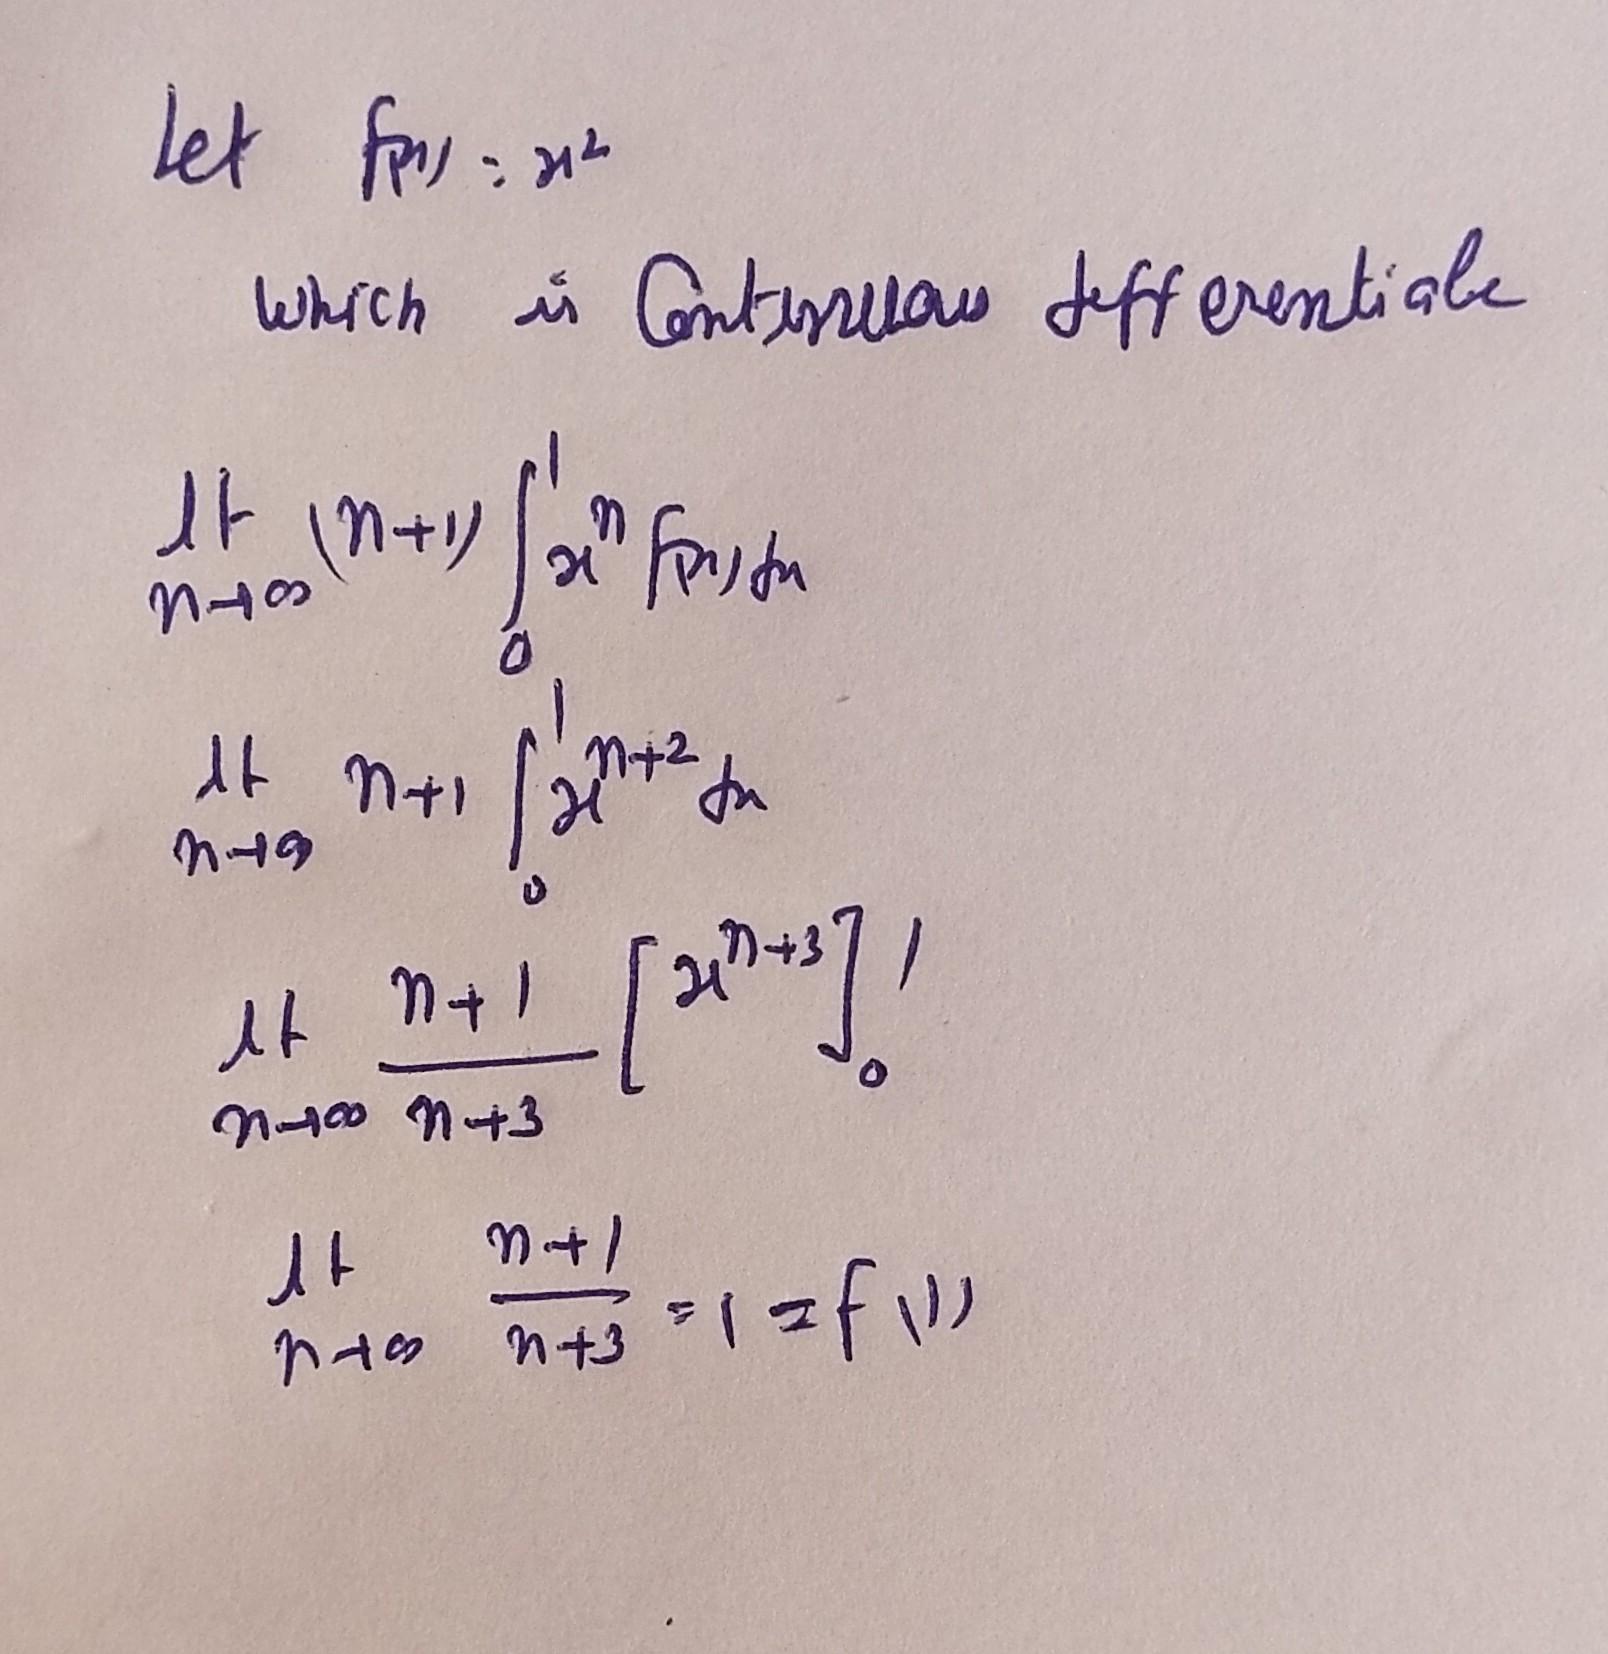 Let f(x) = x²
which is Continuous differentiale
lt n→∞ (n+1) ∫₀¹ xⁿ f(x) dx
lt n→∞ n+1 ∫₀¹ xⁿ⁺² dx
lt n→∞ n+1/n+3 [xⁿ⁺³]₀¹
lt n→∞ n+1/n+3 = 1 = f(1)